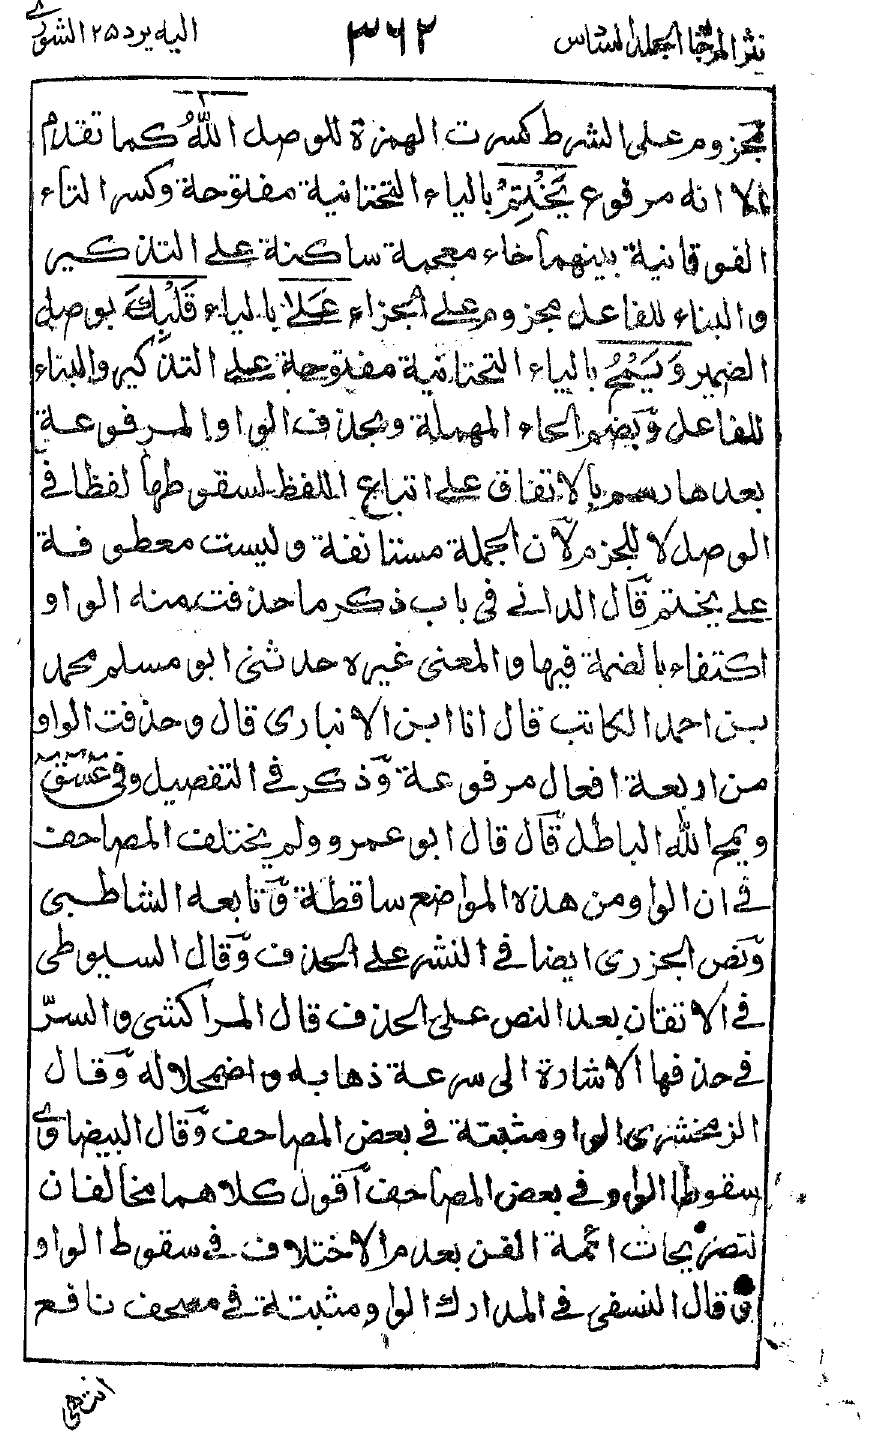 نثر المرجان المجلد السادس ٣٦٢ اليه يرد ٢٥ الشورى
مجزوم على الشرط كسرت الهمزة للوصل اللّٰهُ كما تقدم
الا انه مرفوع يَخْتِمْ بالياء التحتانية مفتوحة وكسر التاء
الفوقانية بينهما خاء معجمة ساكنة على التذكير
والبناء للفاعل مجزوم على الجزاء عَلٰى بالياء قَلْبِكَ بوصل
الضمير وَيَمْحُ بالياء التحتانية مفتوحة على التذكير والبناء
للفاعل وبضم الحاء المهملة وبحذف الواو المرفوعة
بعدها رسم بالاتفاق على اتباع اللفظ لسقوطها لفظا في
الوصل لا للجزم لان الجملة مستانفة وليست معطوفة
على يختم قال الداني في باب ذكر ما حذفت منه الواو
اكتفاء بالضمة فيها والمعنى غيره حدثني ابو مسلم محمد
بن احمد الكاتب قال انا ابن الانبارى قال وحذفت الواو
من اربعة افعال مرفوعة وذكر في التفصيل وفي عسق
ويمح الله الباطل قال قال ابو عمرو ولم يختلف المصاحف
في ان الواو من هذه المواضع ساقطة وتابعه الشاطبي
ونص الجزرى ايضا في النشر على الحذف وقال السيوطى
في الاتقان بعد النص على الحذف قال المراكشى والسرّ
في حذفها الاشارة الى سرعة ذهابه واضمحلاله وقال
الزمخشرى الواو مثبتة في بعض المصاحف وقال البيضاوي
سقوط الواو في بعض المصاحف اقول كلاهما مخالفان
لتصريحات ائمة الفن بعدم الاختلاف في سقوط الواو
قال النسفى في المدارك الواو مثبتة في مصحف نافع
انتهى